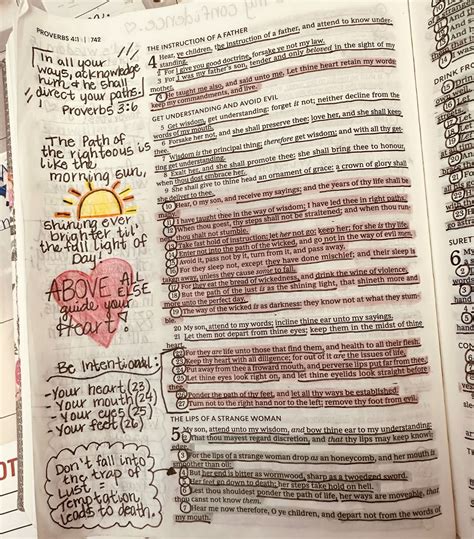 PROVERBS 4:1 | 742
In all your
ways, acknowledge
him, & he shall
direct your paths.
Proverbs 3:6
The Path of
the righteous is
like the
morning sun,
shining ever
brighter til'
the full light of
Day!
ABOVE ALL
ELSE
guide your
Heart!
Be Intentional:
- Your heart (23)
- Your mouth (24)
- Your eyes (25)
- Your feet (26)
Don't fall into
the trap of
Lust =
Temptation
leads to death.
THE INSTRUCTION OF A FATHER
4 Hear, ye children, the instruction of a father, and attend to know under-
standing.
2 For I give you good doctrine, forsake ye not my law.
3 For I was my father's son, tender and only beloved in the sight of my
mother.
4 He taught me also, and said unto me, Let thine heart retain my words:
keep my commandments, and live.
GET UNDERSTANDING AND AVOID EVIL
5 Get wisdom, get understanding: forget it not; neither decline from the
words of my mouth.
6 Forsake her not, and she shall preserve thee: love her, and she shall keep
thee.
7 Wisdom is the principal thing; therefore get wisdom: and with all thy get-
ting get understanding.
8 Exalt her, and she shall promote thee: she shall bring thee to honour,
when thou dost embrace her.
9 She shall give to thine head an ornament of grace: a crown of glory shall
she deliver to thee.
10 Hear, O my son, and receive my sayings; and the years of thy life shall be
many.
11 I have taught thee in the way of wisdom; I have led thee in right paths.
12 When thou goest, thy steps shall not be straitened; and when thou run-
nest, thou shalt not stumble.
13 Take fast hold of instruction; let her not go: keep her; for she is thy life.
14 Enter not into the path of the wicked, and go not in the way of evil men.
15 Avoid it, pass not by it, turn from it, and pass away.
16 For they sleep not, except they have done mischief; and their sleep is taken
away, unless they cause some to fall.
17 For they eat the bread of wickedness, and drink the wine of violence.
18 But the path of the just is as the shining light, that shineth more and
more unto the perfect day.
19 The way of the wicked is as darkness: they know not at what they stum-
ble.
20 My son, attend to my words; incline thine ear unto my sayings.
21 Let them not depart from thine eyes; keep them in the midst of thine
heart.
22 For they are life unto those that find them, and health to all their flesh.
23 Keep thy heart with all diligence; for out of it are the issues of life.
24 Put away from thee a froward mouth, and perverse lips put far from thee.
25 Let thine eyes look right on, and let thine eyelids look straight before
thee.
26 Ponder the path of thy feet, and let all thy ways be established.
27 Turn not to the right hand nor to the left: remove thy foot from evil.
THE LIPS OF A STRANGE WOMAN
5 My son, attend unto my wisdom, and bow thine ear to my understanding:
2 That thou mayest regard discretion, and that thy lips may keep knowl-
edge.
3 For the lips of a strange woman drop as an honeycomb, and her mouth is
smoother than oil:
4 But her end is bitter as wormwood, sharp as a twoedged sword.
5 Her feet go down to death; her steps take hold on hell.
6 Lest thou shouldest ponder the path of life, her ways are moveable, that
thou canst not know them.
7 Hear me now therefore, O ye children, and depart not from the words of
my mouth.
DRINK FRO
SURET
6